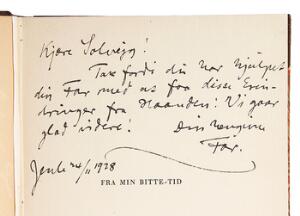 Kjære Solveig!
Tak fordi du har hjulpet
din Far med at faa disse Erin-
dringer fra Haanden! Vi gaar
glad videre! Din
Far.
Jenle 24/11 1928
FRA MIN BITTE-TID